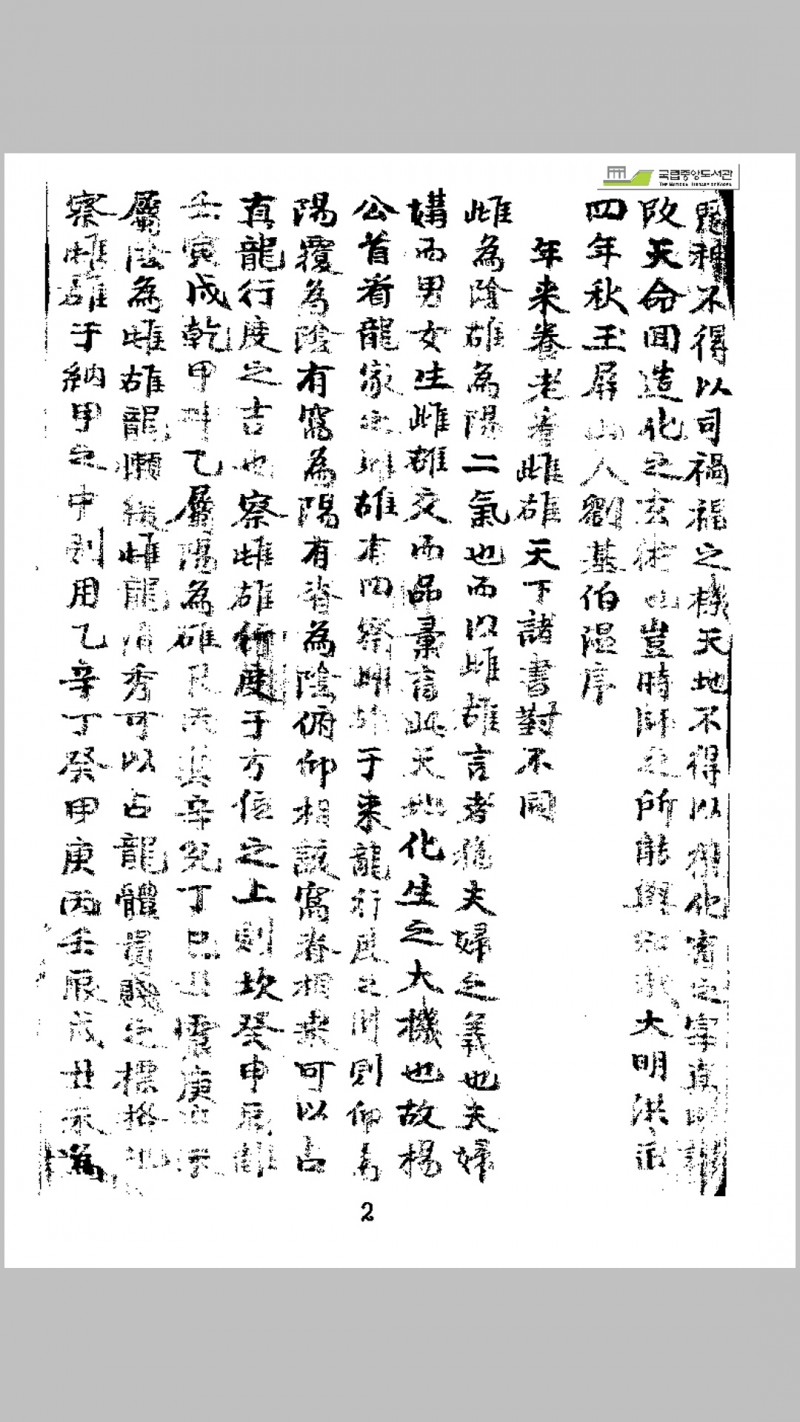 국립중앙도서관
THE NATIONAL LIBRARY OF KOREA
鬼神不得以司禍福之機天地不得以
改天命回造化之玄術也豈時師之所能與知哉大明洪武
四年秋玉屏山人劉基伯溫序
年来養老看雌雄天下諸書對不同
雌為陰雄為陽二氣也而以雌雄言者猶夫婦之義也夫婦
媾而男女生雌雄交而品彙育此天地化生之大機也故楊
公首看龍家之雌雄有四察雌雄于来龍行度之間則仰為
陽覆為陰有窩為陽有脊為陰俯仰相該窩脊相乗可以占
真龍行度之吉也察雌雄行度于方位之上則坎癸申辰離
壬寅戌乾甲坤乙屬陽為雄艮丙巽辛兌丁巳丑震庚亥未
屬陰為雌雄龍懶緩雌龍清秀可以占龍體貴賤之標格也
察雌雄于納甲之中則用乙辛丁癸甲庚丙壬辰戌丑未為
2